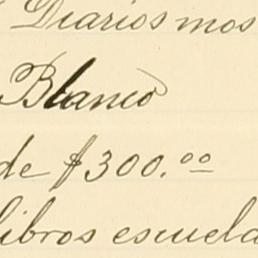 Diarios mos
Blanco
de $300.⁰⁰
libros escuela